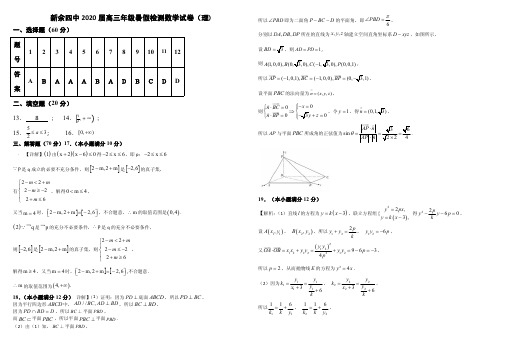 新余四中 2020 届高三年级暑假检测数学试卷（理）
一、选择题（60 分）
题号 1 2 3 4 5 6 7 8 9 10 11 12
答案 A B A A A B A D B C D D
二、填空题（20 分）
13． 8 ； 14．
15． ≤a≤3； 16．[0,+∞)
三、解答题（70 分）17.（本小题满分 10 分）
【详解】(1) 由(x+2)(x-6)≤0得-2≤x≤6，即 p：-2≤x≤6
∵p是q成立的必要不充分条件，则[2-m,2+m]是[-2,6]的真子集，
有 { 2-m<2+m, 2-m≥-2, 2+m≤6 ，解得0<m≤4，
又当m=4时，[2-m,2+m]=[-2,6]，不合题意，∴m的取值范围是(0,4).
(2)∵¬q是¬p的充分不必要条件，∴p是q的充分不必要条件，
则[-2,6]是[2-m,2+m]的真子集，则 { 2-m<2+m, 2-m≤-2, 2+m≥6 ，
解得m≥4，又当m=4时，[2-m,2+m]=[-2,6],不合题意.
∴m的取值范围为(4,+∞).
18.（本小题满分 12 分） 详解】（1）证明：因为 PD⊥底面ABCD，所以 PD⊥BC，
因为平行四边形 ABCD中，AD//BC,AD⊥BD，所以 BC⊥BD，
因为 PD∩BD=D，所以 BC⊥平面PBD，
而 BC⊂平面PBC，所以平面PBC⊥平面PBD.
（2）由（1）知，BC⊥平面PBD，
所以∠PBD 即为二面角 P-BC-D 的平面角，即∠PBD=π/6，
分别以DA,DB,DP所在的直线为x,y,z轴建立空间直角坐标系 D-xyz，如图所示，
设BD=√3，则 AD=PD=1，
则 A(1,0,0),B(0,√3,0),C(-1,√3,0),P(0,0,1)，
所以 AP=(-1,0,1),BC=(-1,0,0),BP=(0,-√3,1)，
设平面PBC的法向量为
则 ，令 y=1，得
所以AP与平面PBC所成角的正弦值为
19．（本小题满分 12 分）
【解析】（1）直线l的方程为y=k(x-3)，联立方程组 { y²=2px, y=k(x-3), 得 y²-(2p/k)y-6p=0，
设A(x₁,y₁)，B(x₂,y₂)，所以 y₁+y₂=2p/k，y₁y₂=-6p，
又OA·OB=x₁x₂+y₁y₂=(y₁y₂)²/4p²+y₁y₂=9-6p=-3，
所以p=2，从而抛物线E的方程为y²=4x.
（2）因为
所以